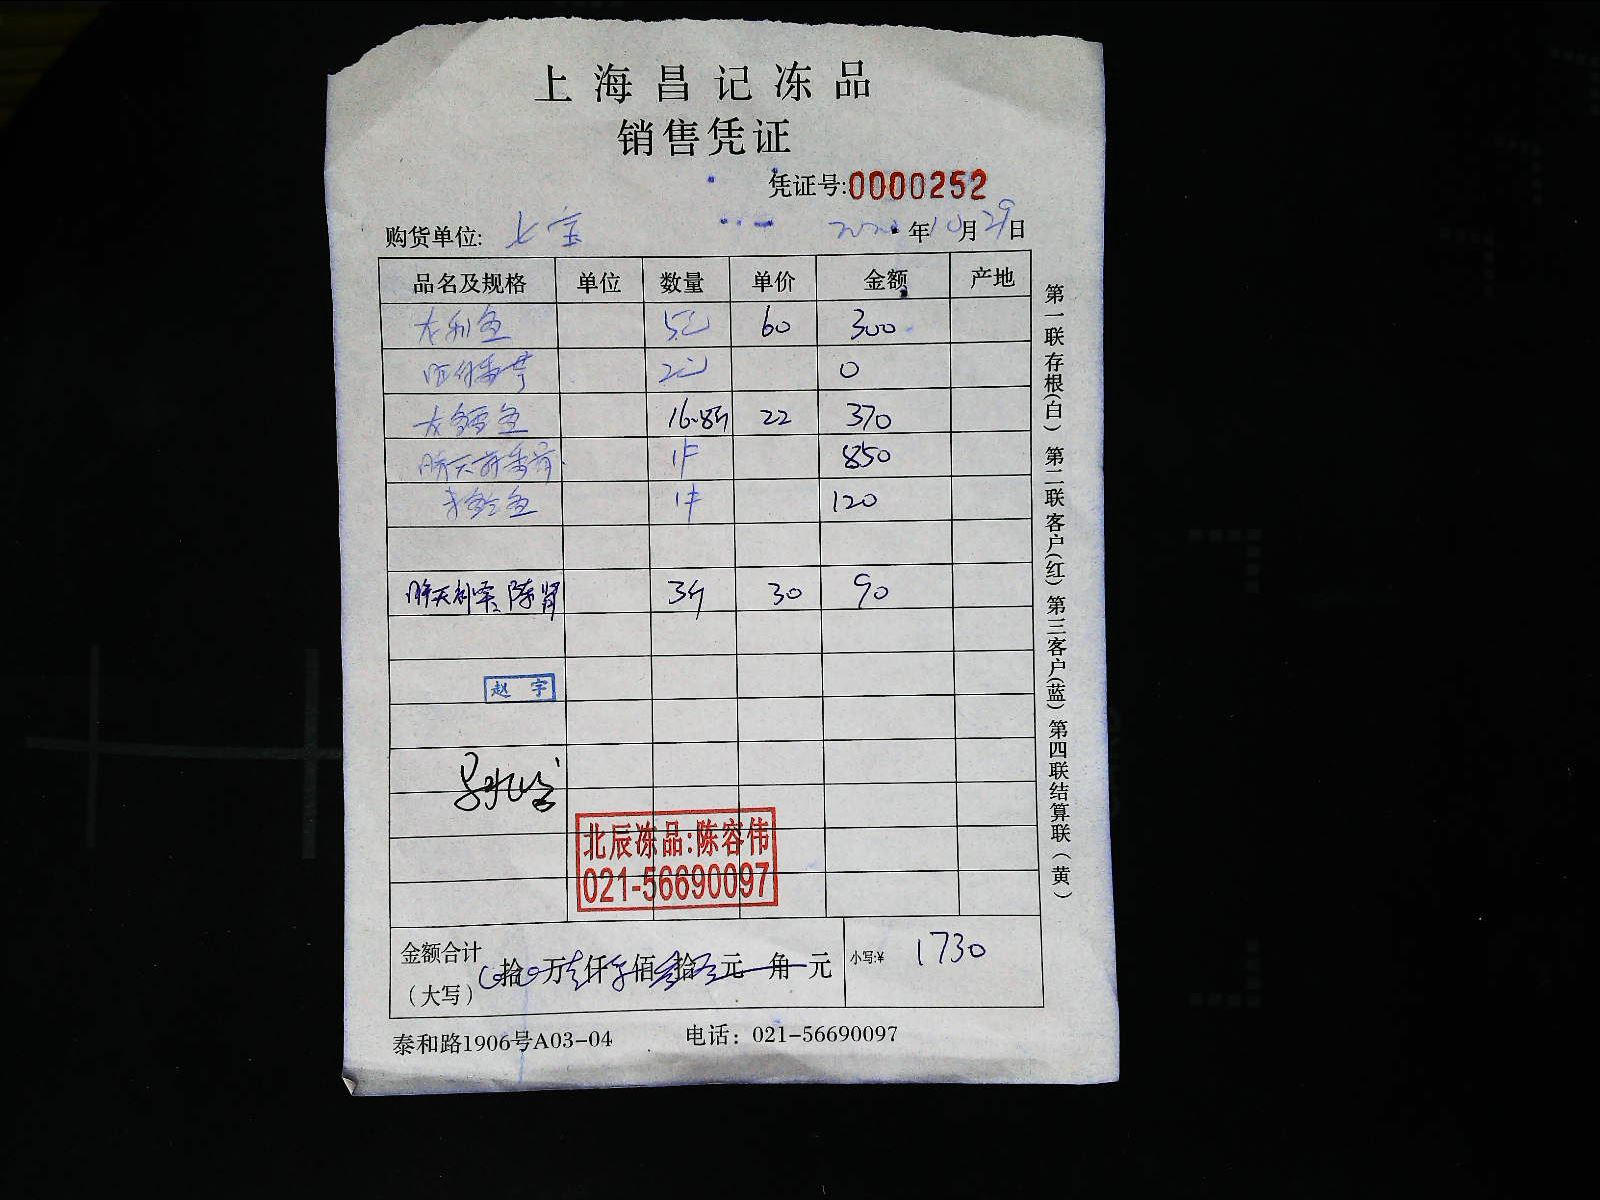 上海昌记冻品
销售凭证
凭证号:0000252
购货单位: 七宝 2020年10月29日
品名及规格 单位 数量 单价 金额 产地
龙利鱼 5包 60 300
2包 0
龙 鱼 16.8斤 22 370
昨天 1件 850
鱼 1件 120
昨天 3斤 30 90
赵宇
北辰冻品:陈容伟
021-56690097
金额合计
(大写) 0拾0万壹仟柒佰叁拾 元 角 元 小写:¥ 1730
泰和路1906号A03-04 电话: 021-56690097
第一联存根(白) 第二联客户(红) 第三客户(蓝) 第四联结算联(黄)